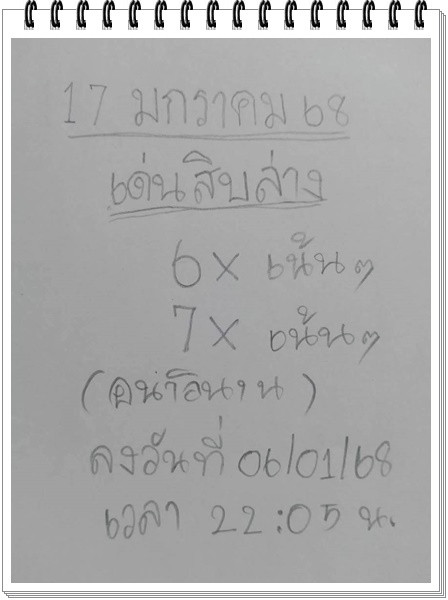 17 มกราคม 68
เด่นสิบล่าง
6x เน้นๆ
7x เน้นๆ
ลงวันที่ 06/01/68
เวลา 22:05 น.